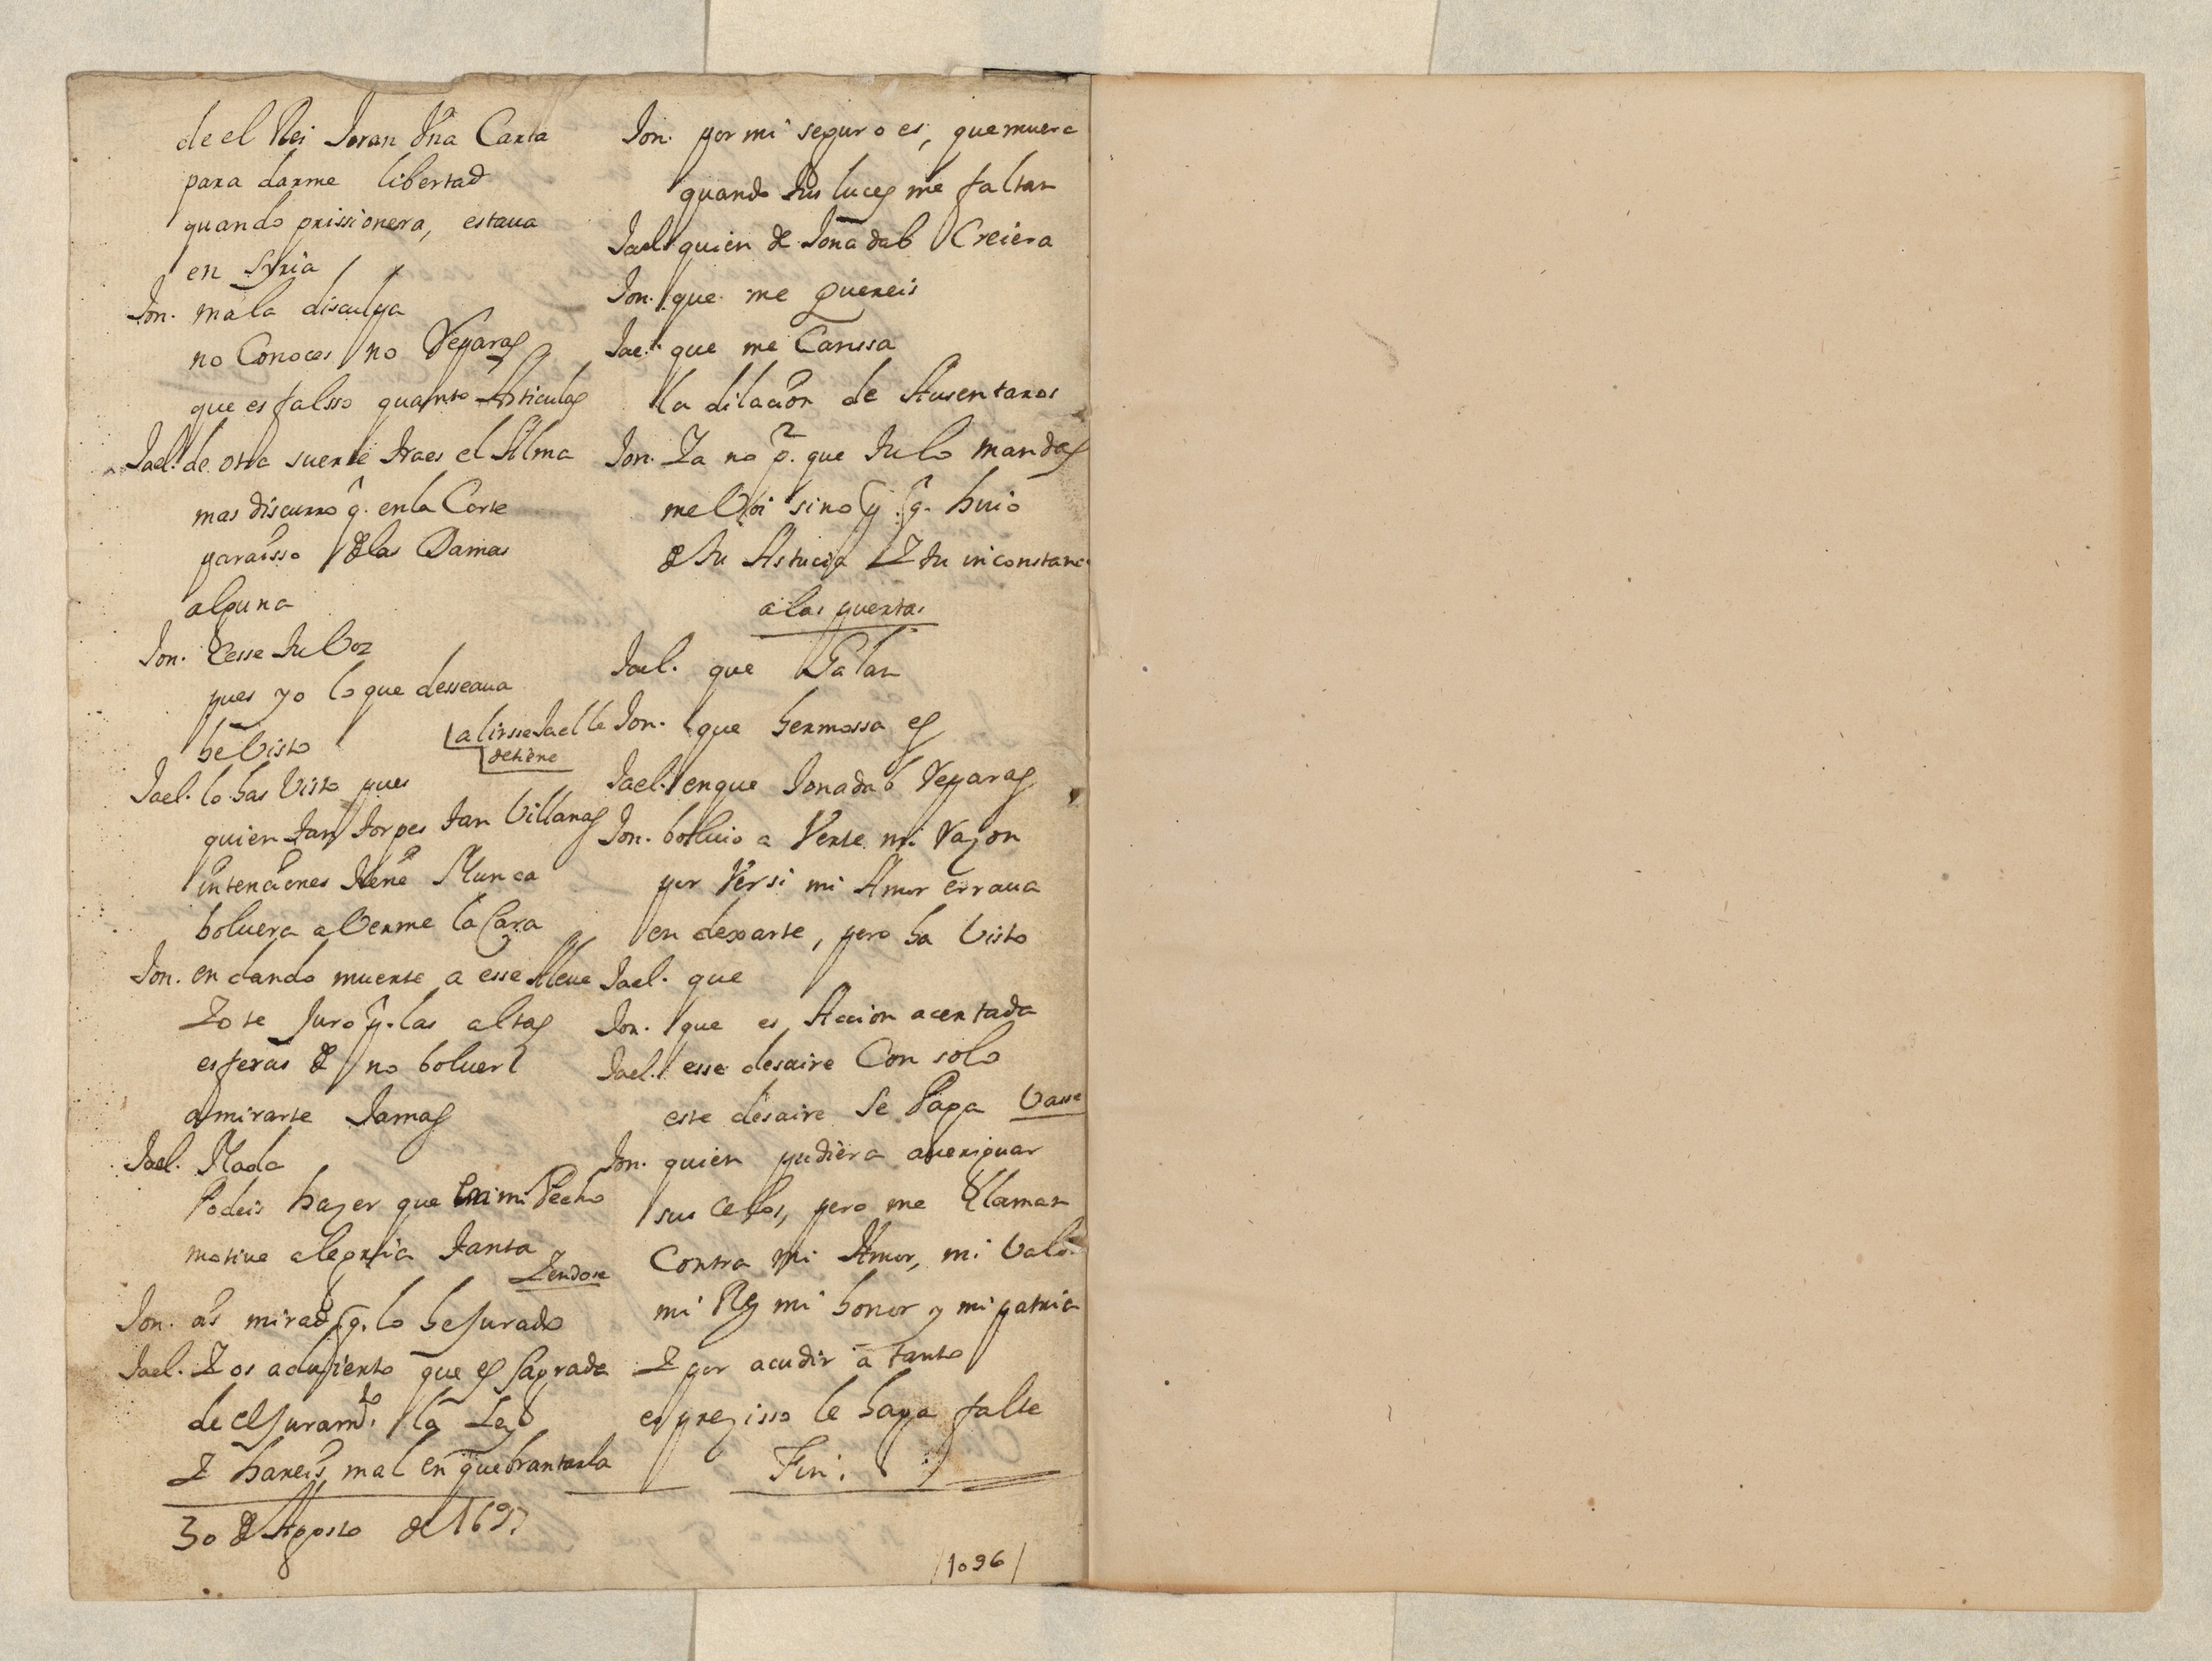 de el Rei Joran Vna Carta
para darme libertad
quando prissionera, estaua
en Syria
Jon. mala disculpa
no Conoces no Reparas
que es falsso quanto Articulas
Jael. de otra suerte traes el Alma
mas discurro q. en la Corte
paraisso de las Damas
alguna
Jon. Cesse tu Voz
pues yo lo que desseaua
he Visto
al irsse Jael le
detiene
Jael. lo has Visto pues
quien tan torpes tan Villanas
intenciones tiene Nunca
boluera a Verme la Cara
Jon. en dando muerte a esse Aleue
Yo te Juro p. las altas
esferas de no boluer
a mirarte Jamas
Jael. Nada
Podeis hazer que en mi Pecho
motiue alegria tanta
Yendose
Jon. as mirad q. lo he Jurado
Jael. Y os aduierto que es Sagrada
de el Juramto. la Ley
Y hareis mal en quebrantarla
30 de Agosto de 1697
Jon. por mi seguro es, que muera
quando tus luces me faltan
Jael. quien de Jonadab Creiera
Jon. que me quereis
Jael. que me Canssa
la dilacion de Ausentaros
Jon. Ya no p. que tu lo mandas
me Voi sino p. q. huio
de tu Astucia Y tu inconstanc
a las puertas
Jael. que Galan
Jon. que hermossa es
Jael. en que Jonadab Reparas
Jon. boluio a Verte mi Razon
por Ver si mi Amor erraua
en dexarte, pero ha Visto
Jael. que
Jon. que es Accion acertada
Jael. esse desaire Con solo
este desaire Se Paga Vasse
Jon. quien pudiera aueriguar
sus Celos, pero me llaman
Contra mi Amor, mi Valor
mi Rey mi honor y mi patria
Y por acudir a tanto
es prezisso le haga falte
Fin.
/1096/